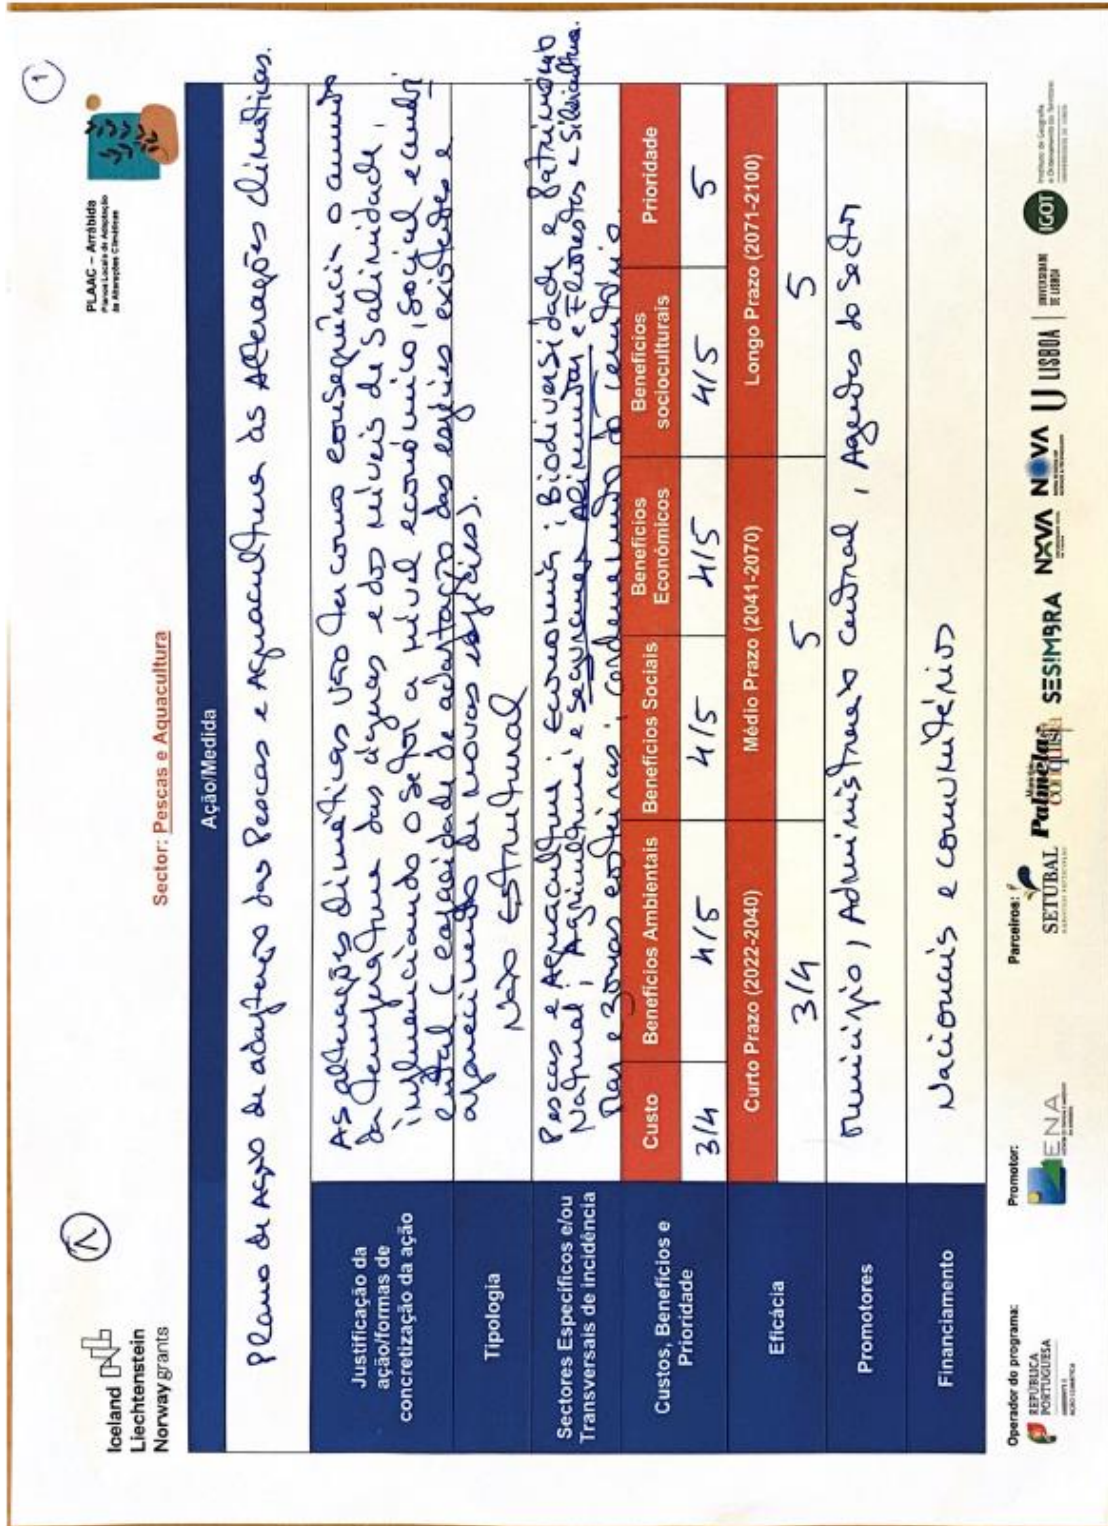 Iceland
Liechtenstein
Norway grants
1
PLAAC – Arrábida
Planos Locais de Adaptação
às Alterações Climáticas
1
Sector: Pescas e Aquacultura
Ação/Medida
Plano de Ação de adaptação das Pescas e Aquacultura às Alterações climáticas.
Justificação da
ação/formas de
concretização da ação
As alterações climáticas vão ter como consequência o aumento
da temperatura das águas e dos níveis de salinidade,
influenciando o setor a nível económico, social e ambi
ental (capacidade de adaptação das espécies existentes e
aparecimento de novas espécies).
Tipologia
Não Estrutural
Sectores Específicos e/ou
Transversais de incidência
Pescas e Aquacultura; Economia; Biodiversidade e Património
Natural; Agricultura e segurança Alimentar e Florestas e Silvicultura.
Mar e zonas costeiras; ordenamento do território.
Custos, Benefícios e
Prioridade
Custo
Benefícios Ambientais
Benefícios Sociais
Benefícios
Económicos
Benefícios
socioculturais
Prioridade
3/4
4/5
4/5
4/5
4/5
5
Eficácia
Curto Prazo (2022-2040)
Médio Prazo (2041-2070)
Longo Prazo (2071-2100)
3/4
5
5
Promotores
Município, Administração central, Agentes do Sector
Financiamento
Nacionais e comunitários
Operador do programa:
REPÚBLICA
PORTUGUESA
AMBIENTE E
AÇÃO CLIMÁTICA
Promotor:
ENA
Parceiros:
SETÚBAL
Palmela
conquista
SESIMBRA
NOVA
NOVA
U LISBOA
UNIVERSIDADE
DE LISBOA
IGOT
Instituto de Geografia
e Ordenamento do Território